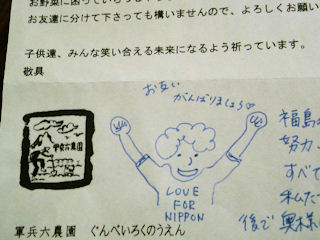 お友達に分けて下さっても構いませんので、よろしくお願い
子供達、みんな笑い合える未来になるよう祈っています。
敬具
お互い
がんばりましょう♡
LOVE
FOR
NIPPON
福島の
努力
すべて
私た
後で 奥様
軍兵六農園 ぐんべいろくのうえん